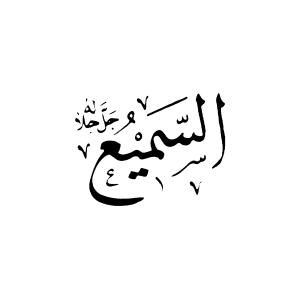 السَّمِيعُ جَلَّ جَلَالُهُ